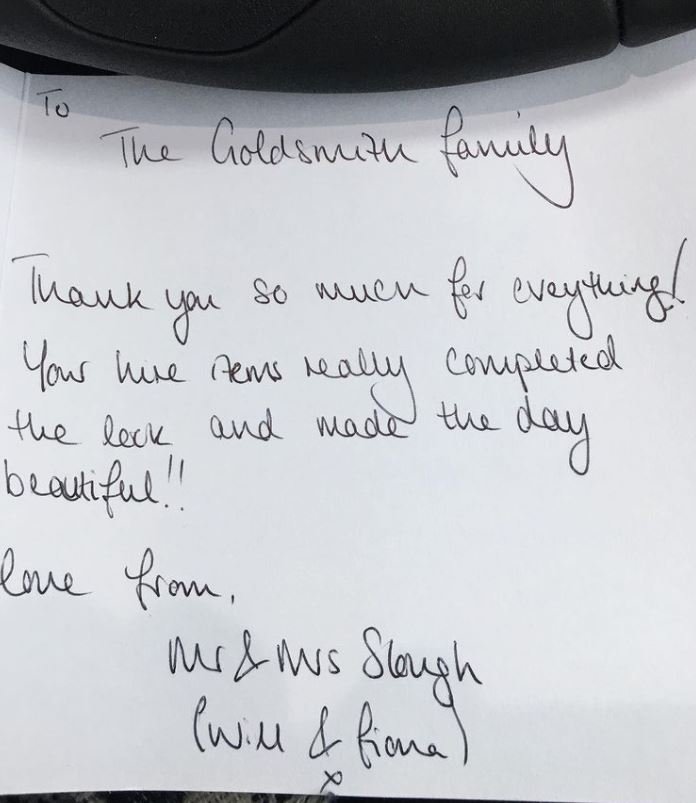 To
The Goldsmith family
Thank you so much for eveything!
Your hire items really completed
the look and made the day
beautiful!!
love from,
Mr & Mrs Slough
(Will & fiona)
x